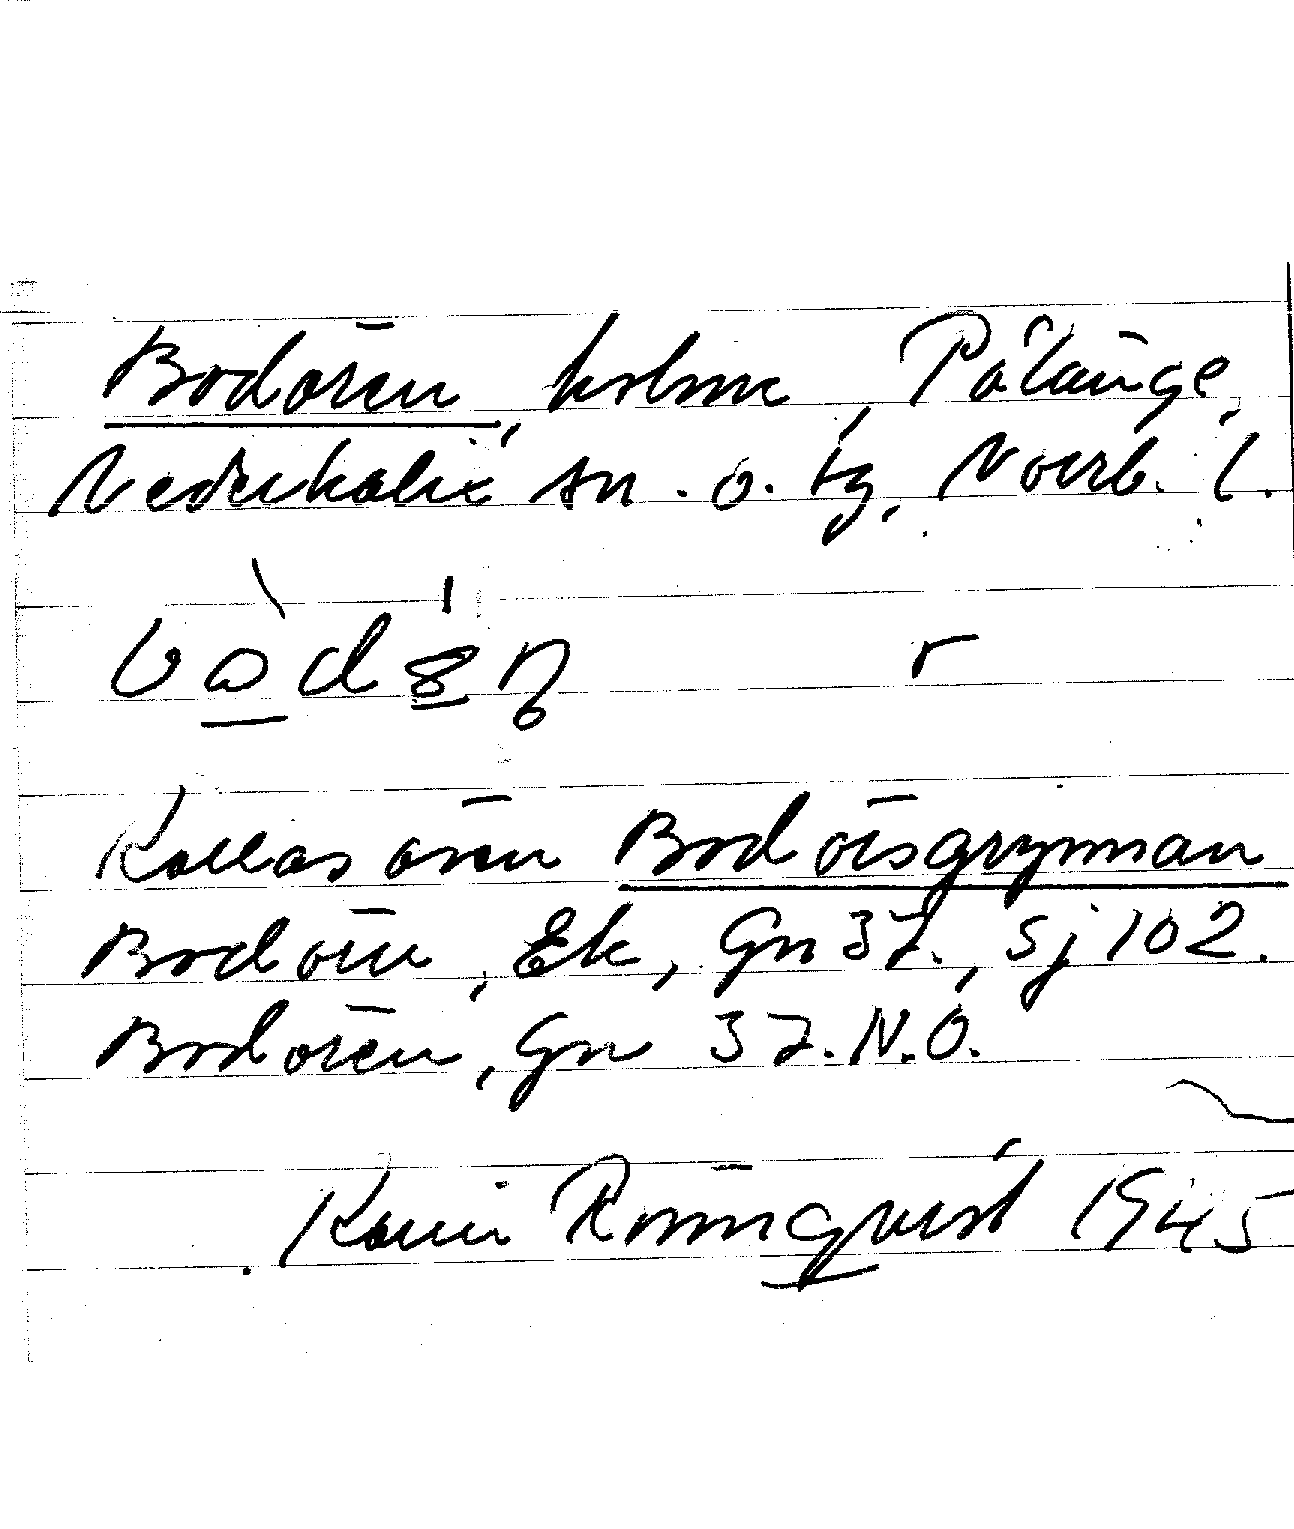 Bodören, holme, Pålänge,
Nederkalix sn. o. tg, Norrb. l.
r
Kallas även Bodörsgrynnan
Bodörn, Ek, Gn 37., Sj 102.
Bodören, Gn 37. N.O.
Karin Rönnqvist 1945